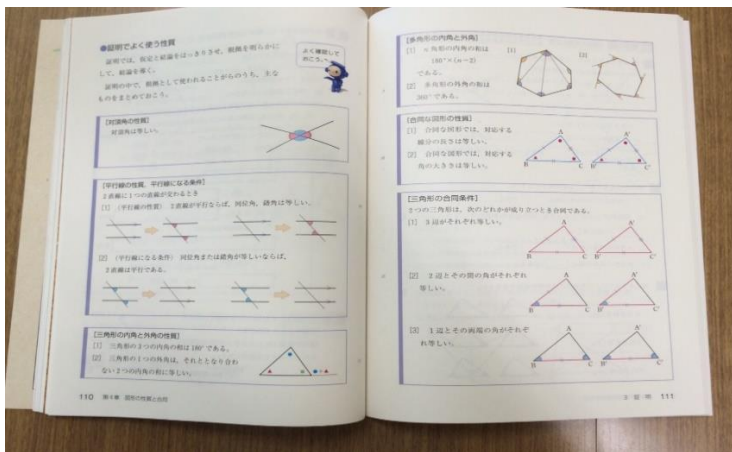 ●証明でよく使う性質
証明では，仮定と結論をはっきりさせ，根拠を明らかに
して，結論を導く。
証明の中で，根拠として使われることがらのうち，主な
ものをまとめておこう。
よく確認して
おこう。
[対頂角の性質]
対頂角は等しい。
[平行線の性質，平行線になる条件]
2直線に1つの直線が交わるとき
[1] (平行線の性質) 2直線が平行ならば，同位角，錯角は等しい。
[2] (平行線になる条件) 同位角または錯角が等しいならば，
2直線は平行である。
[三角形の内角と外角の性質]
[1] 三角形の3つの内角の和は180°である。
[2] 三角形の1つの外角は，それととなり合わ
ない2つの内角の和に等しい。
110 第4章 図形の性質と合同
[多角形の内角と外角]
[1] n角形の内角の和は
180°×(n−2)
である。
[2] 多角形の外角の和は
360°である。
[1]
[2]
[合同な図形の性質]
[1] 合同な図形では，対応する
線分の長さは等しい。
[2] 合同な図形では，対応する
角の大きさは等しい。
A
B
C
A'
B'
C'
[三角形の合同条件]
2つの三角形は，次のどれかが成り立つとき合同である。
[1] 3辺がそれぞれ等しい。
A
B
C
A'
B'
C'
[2] 2辺とその間の角がそれぞれ
等しい。
A
B
C
A'
B'
C'
[3] 1辺とその両端の角がそれぞ
れ等しい。
A
B
C
A'
B'
C'
2 証明 111